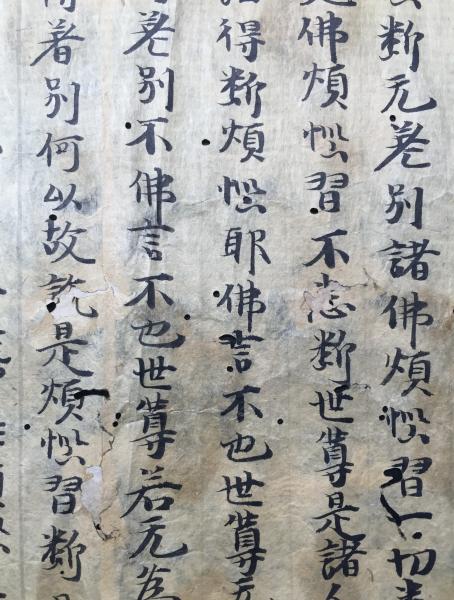 断无差别諸佛煩惱習一切
佛煩惱習不悉断世尊是諸
得断煩惱耶佛言不也世尊无
差别不佛言不也世尊若无為
得差别何以故說是煩惱習断